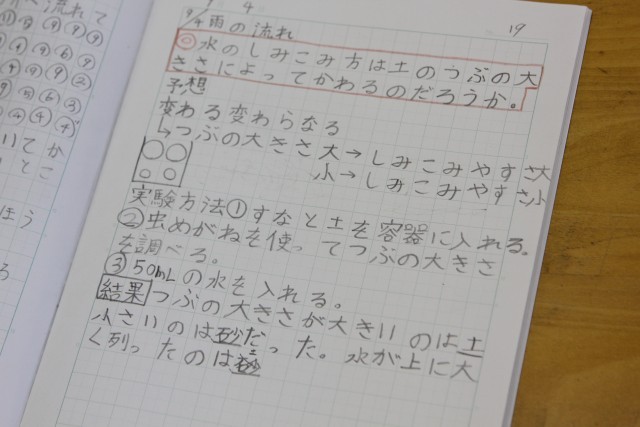 9/4 雨の流れ
19
◎水のしみこみ方は土のつぶの大
きさによってかわるのだろうか。
予想
変わる変わらなる
↳つぶの大きさ大→しみこみやすさ大
小→しみこみやすさ小
実験方法①すなと土を容器に入れる。
②虫めがねを使ってつぶの大きさ
を調べる。
③50mLの水を入れる。
結果つぶの大きさが大きいのは土
小さいのは砂だった。水が上に大
く列ったのは砂
流れて
いてか
とこ
ほう
る